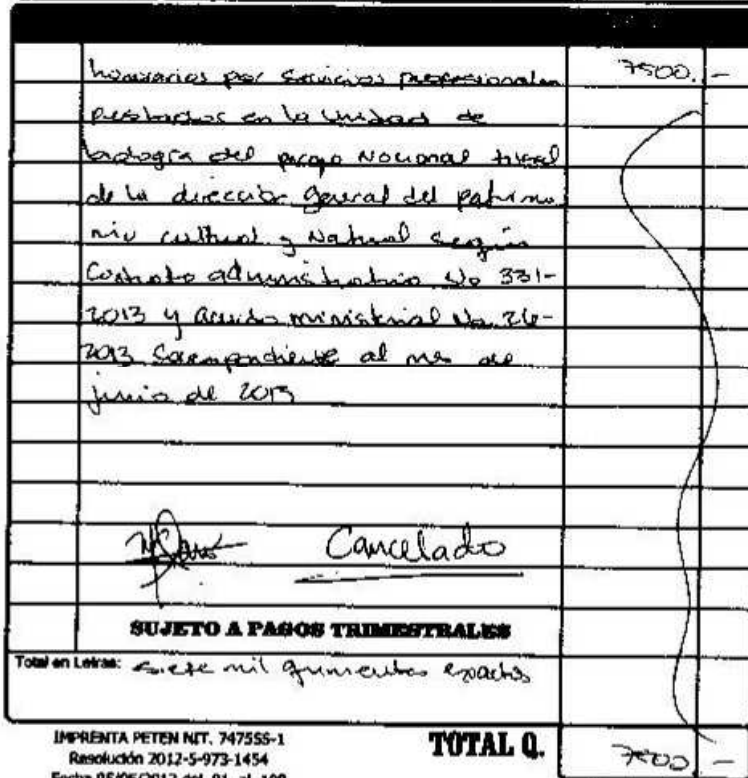 honorarios por servicios profesionales 7500.-
prestados en la Unidad de
biología del parque Nacional tikal
de la dirección general del patrimo
nio cultural y Natural según
Contrato administrativo No 331-
2013 y acuerdo ministerial No. 26-
2013 Correspondiente al mes de
junio de 2013
Cancelado
SUJETO A PAGOS TRIMESTRALES
Total en Letras: siete mil quinientos exactos
IMPRENTA PETEN NIT. 747555-1
Resolución 2012-5-973-1454
TOTAL Q. 7500.-